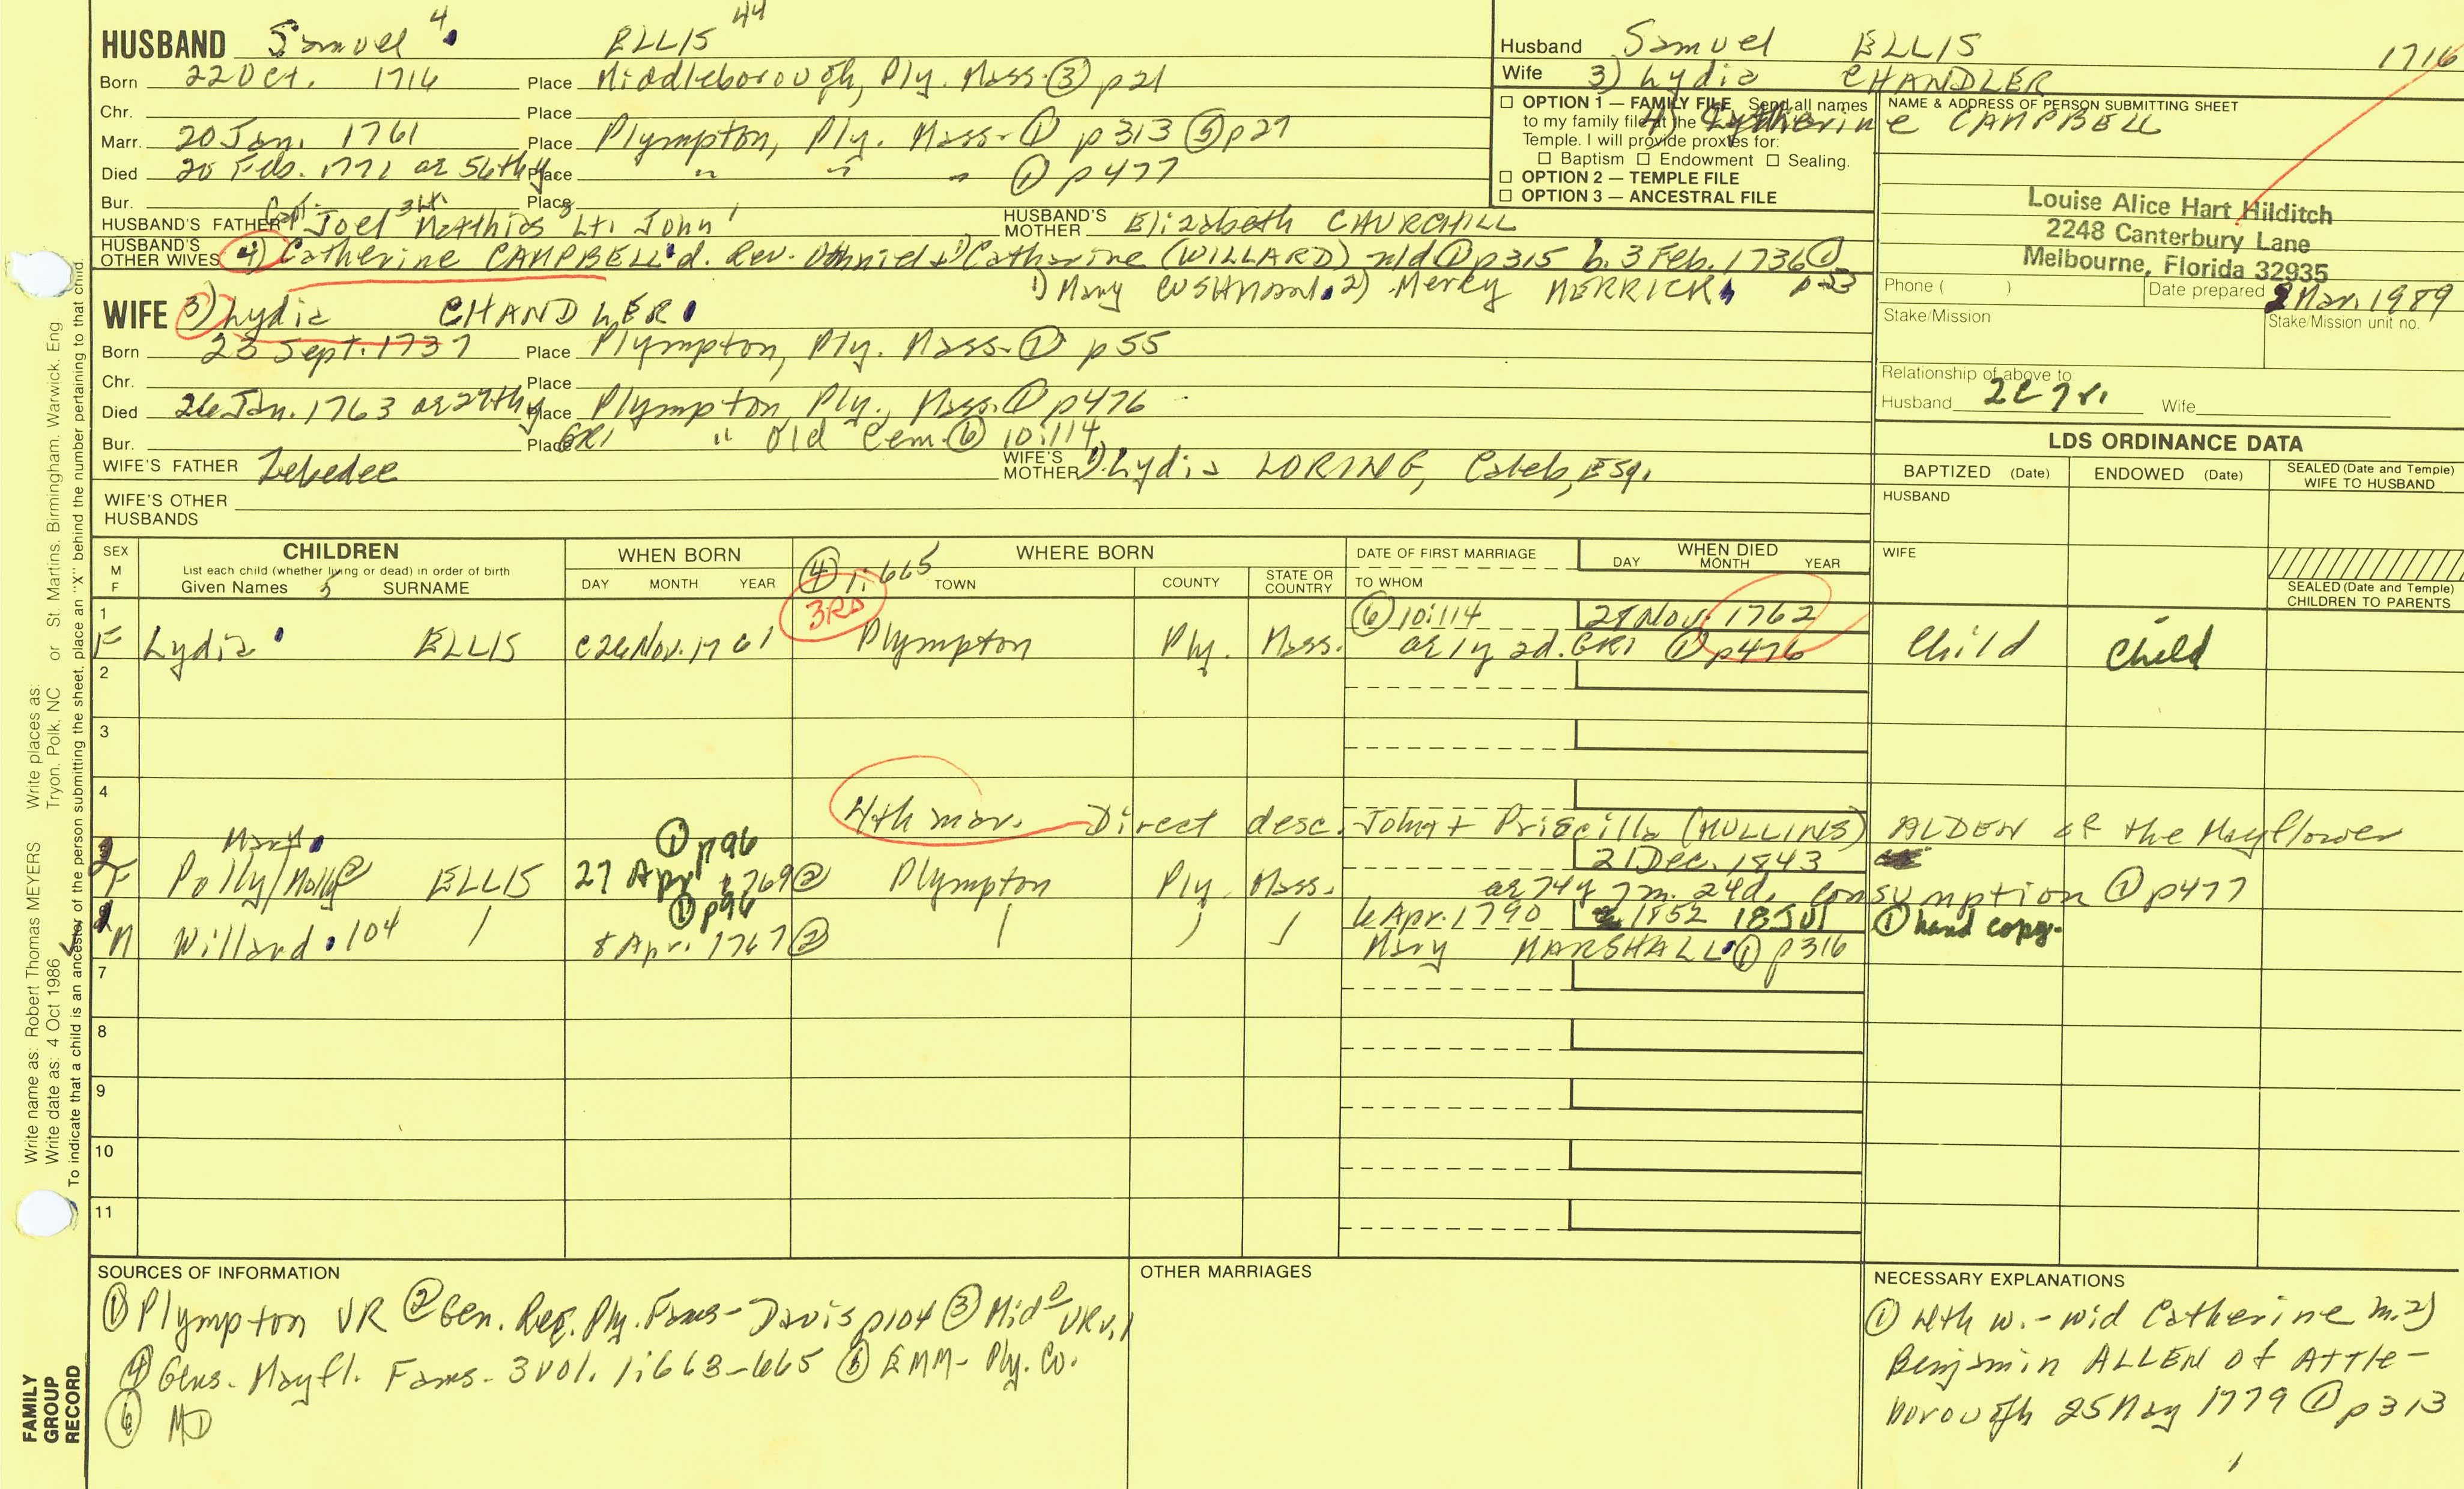 HUSBAND Samuel 4 ELLIS 44
Born 22 Oct. 1716 Place Middleborough, Ply. Mass. ③ p21
Chr. Place
Marr. 20 Jan. 1761 Place Plympton, Ply. Mass. ① p313 ⑤ p27
Died 20 Feb. 1771 ae 56thy Place " " " ① p477
Bur. Place
HUSBAND'S FATHER Capt. Joel 3 Lt. Matthias Lt. John 1 HUSBAND'S MOTHER Elizabeth CHURCHILL
HUSBAND'S OTHER WIVES 4) Catherine CAMPBELL d. Rev. Othniel & 1) Catharine (WILLARD) mld ① p315 b. 3 Feb. 1736 ① p23
1) Mary CUSHMAN 2) Mercy MERRICK
WIFE 3) Lydia CHANDLER
Born 23 Sept. 1737 Place Plympton, Ply. Mass. ① p55
Chr. Place
Died 26 Jan. 1763 ae 27thy Place Plympton, Ply., Mass. ① p476
Bur. Place GR1 " Old Cem. ⑥ 10:114
WIFE'S FATHER Zebedee WIFE'S MOTHER 1) Lydia LORING, Caleb, Esq.
WIFE'S OTHER HUSBANDS
Husband Samuel ELLIS 1716
Wife 3) Lydia CHANDLER
4) Catherine CAMPBELL
☐ OPTION 1 — FAMILY FILE Send all names
to my family file at the
Temple. I will provide proxies for:
☐ Baptism ☐ Endowment ☐ Sealing.
☐ OPTION 2 — TEMPLE FILE
☐ OPTION 3 — ANCESTRAL FILE
NAME & ADDRESS OF PERSON SUBMITTING SHEET
Louise Alice Hart Hilditch
2248 Canterbury Lane
Melbourne, Florida 32935
Phone ( ) Date prepared 2 Mar. 1989
Stake/Mission Stake/Mission unit no.
Relationship of above to
Husband 2C7r. Wife
LDS ORDINANCE DATA
BAPTIZED (Date) ENDOWED (Date) SEALED (Date and Temple) WIFE TO HUSBAND
HUSBAND
WIFE
SEALED (Date and Temple) CHILDREN TO PARENTS
SEX M F CHILDREN
List each child (whether living or dead) in order of birth
Given Names 5 SURNAME
WHEN BORN
DAY MONTH YEAR
④ 1:665 WHERE BORN
TOWN COUNTY STATE OR COUNTRY
DATE OF FIRST MARRIAGE
TO WHOM
WHEN DIED
DAY MONTH YEAR
3RD
⑥ 10:114 27 Nov. 1762
1 F Lydia ELLIS c 26 Nov. 1761 Plympton Ply. Mass. ae 1y 2d. GR1 ① p476 Child Child
2
3
4
4th mar. Direct desc. John + Priscilla (MULLINS) ALDEN of the Mayflower
Mary ① p96 21 Dec. 1843
F Polly/Molly ② ELLIS 27 Apr 1769 ② Plympton Ply. Mass. ae 74y 7m. 24d. consumption ① p477
① p96 6 Apr. 1790 1852 18 Jul ① hand copy.
M Willard 104 / 8 Apr. 1767 ② / / / Mary MARSHALL ① p316
7
8
9
10
11
SOURCES OF INFORMATION
① Plympton VR ② Gen. Reg. Ply. Fams - Davis p104 ③ Midᵒ VR v.1
④ Gens. Mayfl. Fams. 3 vol. 1:663-665 ⑤ EMM - Ply. Co.
⑥ MD
OTHER MARRIAGES
NECESSARY EXPLANATIONS
① 4th w. - wid Catherine m. 2)
Benjamin ALLEN of Attle-
borough 25 May 1779 ① p313
Write name as: Robert Thomas MEYERS Write places as: Tryon, Polk, NC or St. Martins, Birmingham, Warwick, Eng
Write date as: 4 Oct 1986
To indicate that a child is an ancestor of the person submitting the sheet, place an "X" behind the number pertaining to that child.
FAMILY GROUP RECORD